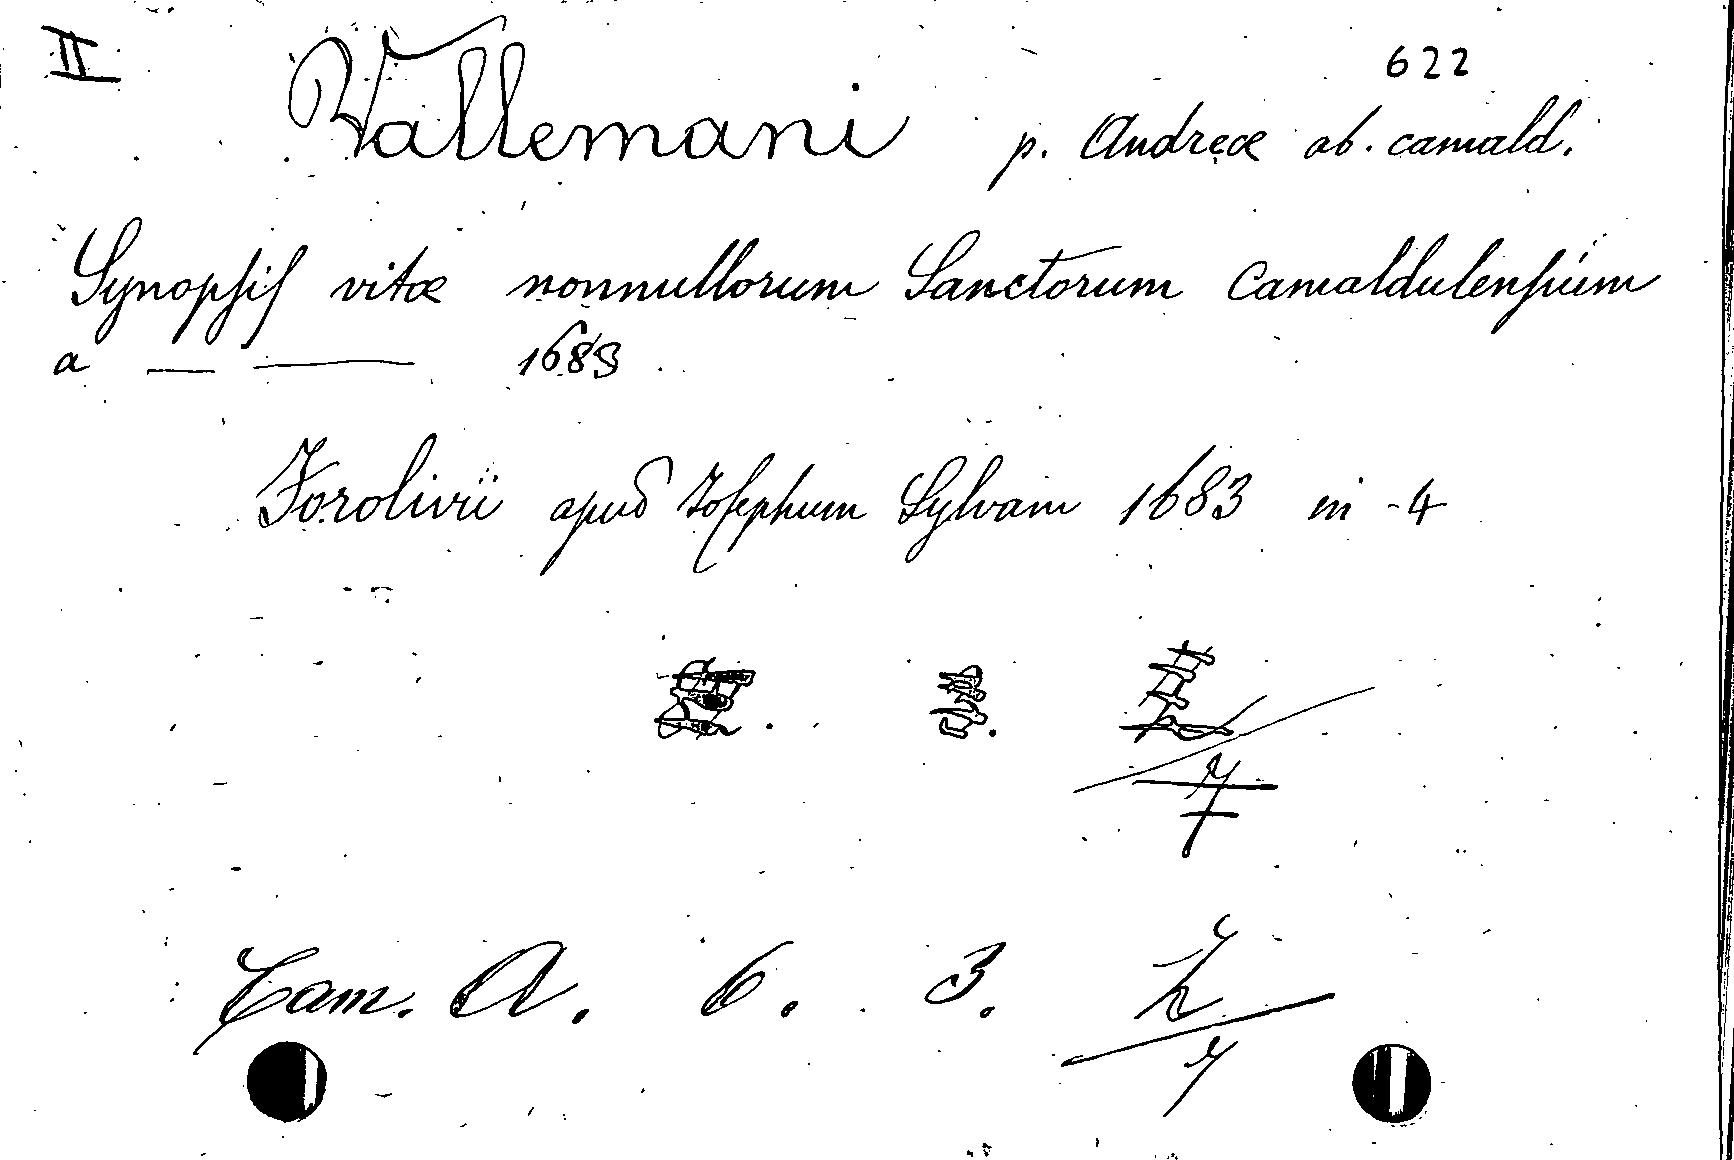 II 622
Vallemani p. Andreæ ab. camald.
Synopsis vitæ nonnullorum Sanctorum Camaldulensium
a — — 1683
Forolivii apud Josephum Sylvam 1683 in -4
7
Cam. A. 6. 3. Z/7